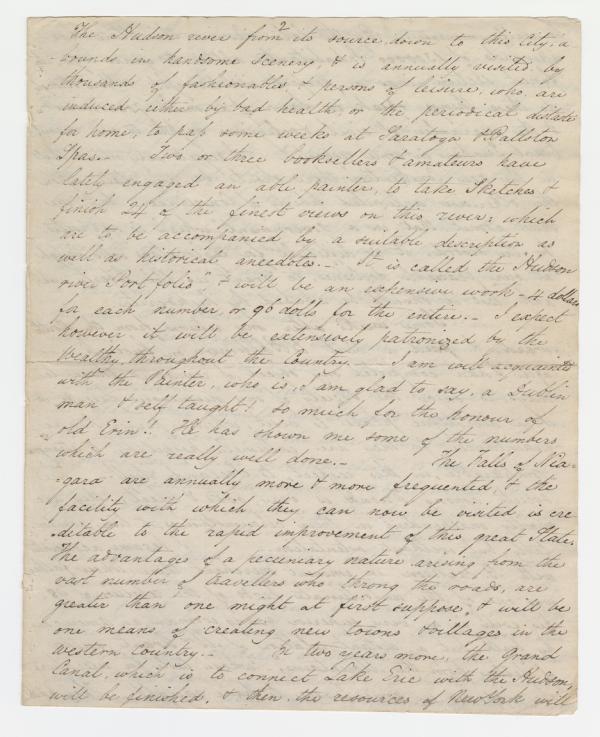 The Hudson river from its source, down to this City, a
bounds in handsome Scenery, & is annually visited by
thousands of fashionables & persons of leisure, who are
induced, either by bad health, or the periodical distaste
for home, to pass some weeks at Saratoga & Ballston
Spas.- Two or three booksellers & amateurs have
lately engaged an able painter, to take Sketches &
finish 24 of the finest views on this river; which
are to be accompanied by a suitable description as
well as historical anecdotes.- It is called the "Hudson
river Port folio", & will be an expensive work - 4 dollars
for each number, or 96 dolls for the entire.- I expect
however it will be extensively patronized by the
Wealthy, throughout the Country.- I am well acquainted
with the Painter, who is, I am glad to say, a Dublin
man & self taught! so much for the honour of
old Erin!! He has shown me some of the numbers
which are really well done.- The Falls of Nia-
-gara are annually more & more frequented, & the
facility with which they can now be visited is cre-
-ditable to the rapid improvement of this great State.
The advantages of a pecuniary nature arising from the
vast number of travellers who throng the roads, are
greater than one might at first suppose, & will be
one means of creating new towns & villages in the
western Country.- In two years more, the Grand
Canal, which is to connect Lake Erie with the Hudson,
will be finished, & then the resources of New York will